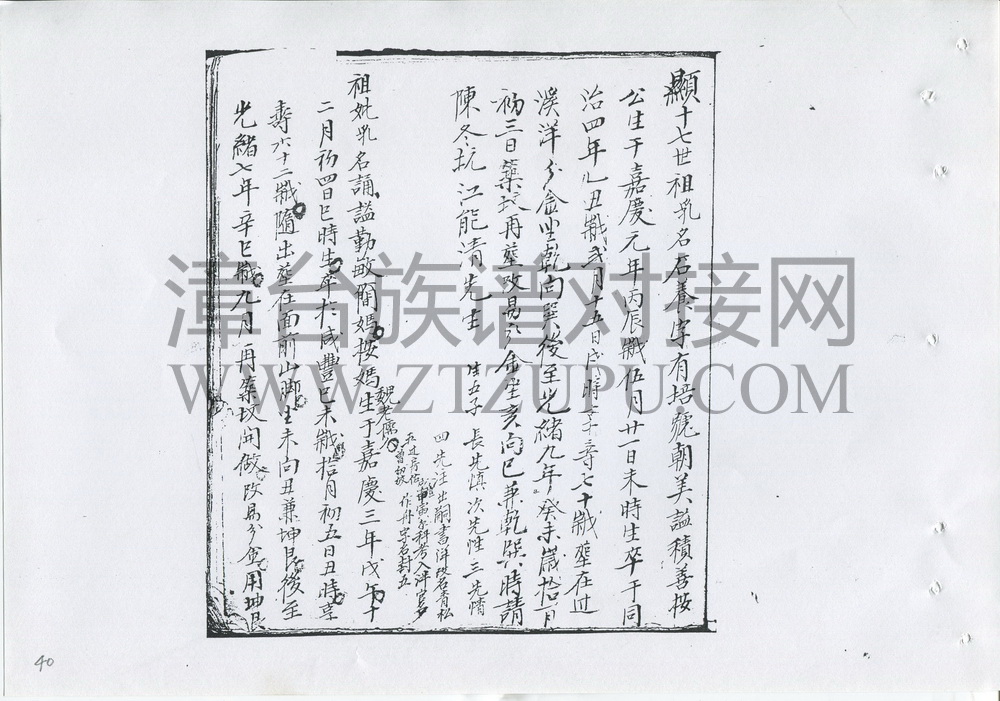 顯十七世祖乳名石養字有培號朝美謚積善按
公生于嘉慶元年丙辰嵗伍月廿一日未時生卒于同
治四年乙丑嵗弍月十五日戌時享壽七十嵗塟在过
溪洋分金坐乾向巽後至光緒九年癸未嵗拾一月
初三日築坟再塟改易分金坐亥向巳兼乾巽時請
陳冬坑江能清先生
生五子
長先慎次先性三先情
四先汪出嗣書洋改名青松
作舟字石封五
祖妣乳名誦謚勤敏簡媽按媽生于嘉慶三年戊午十
二月初四日巳時生卒於咸豐己未嵗拾月初五日丑時享
壽六十二嵗隨出塟在面前山脚坐未向丑兼坤艮後至
光緒七年辛巳嵗九月再築坟開做改易分金用坤艮
40
漳台族谱对接网
WWW.ZTZUPU.COM